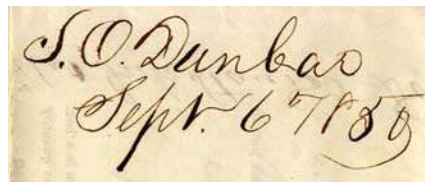 S. O. Dunbar
Sept. 6 1850